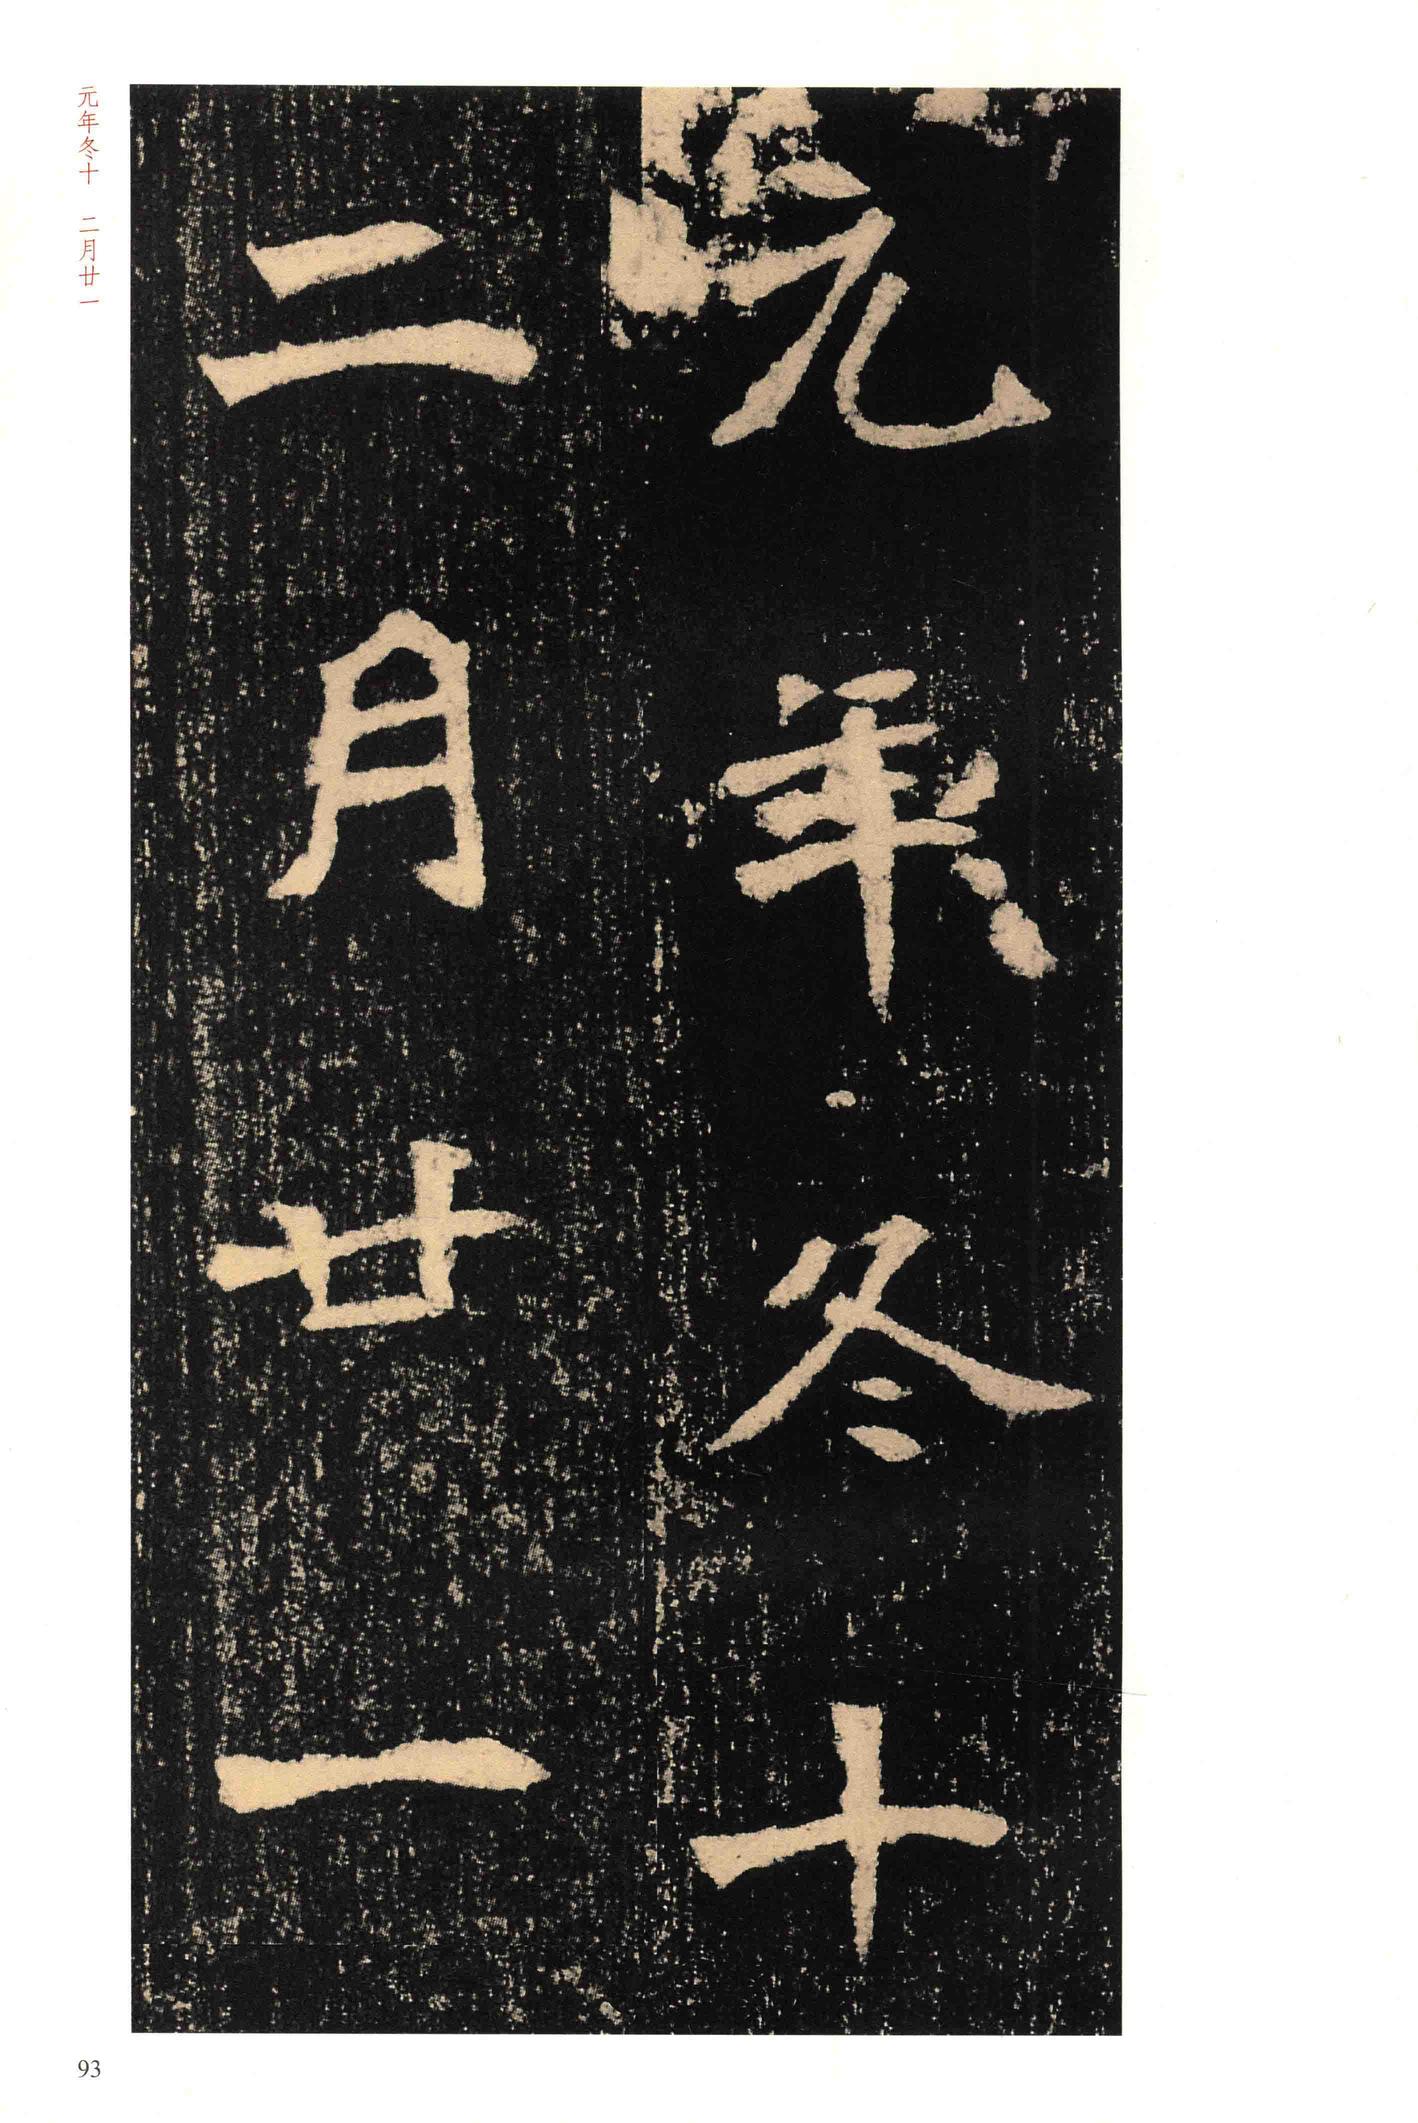 元年冬十
二月廿一
元年冬十 二月廿一
93